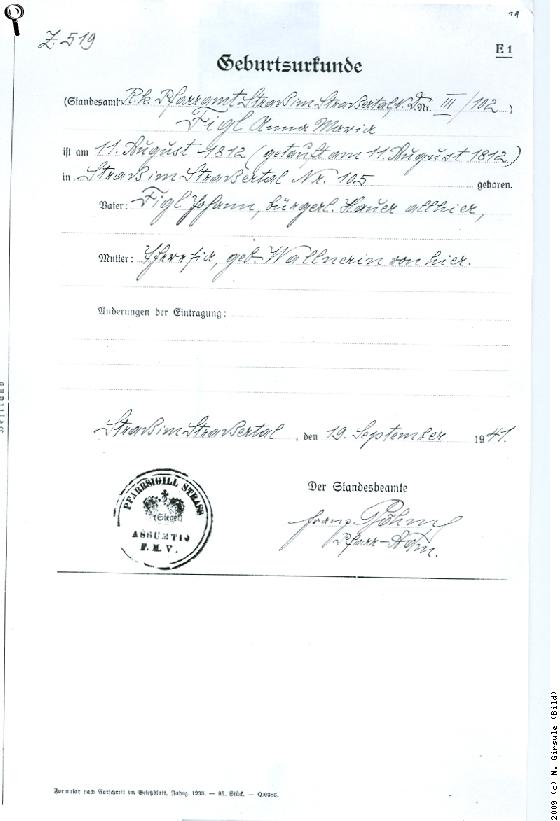 Z. 519
E 1
Geburtsurkunde
(Standesamt: Rk. Pfarramt Straß im Straßertal, N.D. Nr. III/102)
Figl Anna Maria
ist am 11. August 1812 (getauft am 11. August 1812)
in Straß im Straßertal Nr. 105 geboren.
Vater: Figl Johann, bürgerl. Hauer allhier,
Mutter: Theresia, geb. Wallnerin von hier.
Änderungen der Eintragung:
Straß im Straßertal, den 19. September 1941.
Der Standesbeamte
PFARRSIGILL STRASS
(Siegel)
ASSUMTIJ
B.M.V.
Franz Böhm
Pfarr-Adm.
Formular nach Vorschrift im Gesetzblatt, Jahrg. 1938. — 81. Stück. —
2009 (c) N. Girsule (Bild)